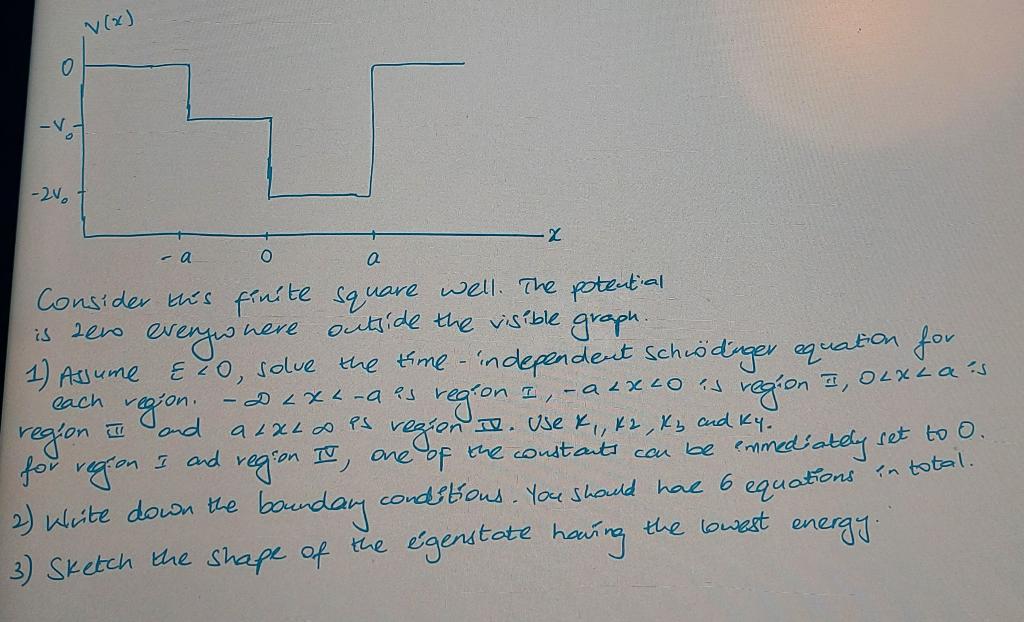 V(x)
0
-V₀
-2V₀
-a 0 a x
Consider this finite square well. The potential
is zero everywhere outside the visible graph.
1) Assume E<0, solve the time-independent schrödinger equation for
each region. -∞<x<-a is region I, -a<x<0 is region II, 0<x<a is
region III and a<x<∞ is region IV. Use K₁, K₂, K₃ and K₄.
for region I and region IV, one of the constants can be immediately set to 0.
2) Write down the boundary conditions. You should have 6 equations in total.
3) Sketch the shape of the eigenstate having the lowest energy.